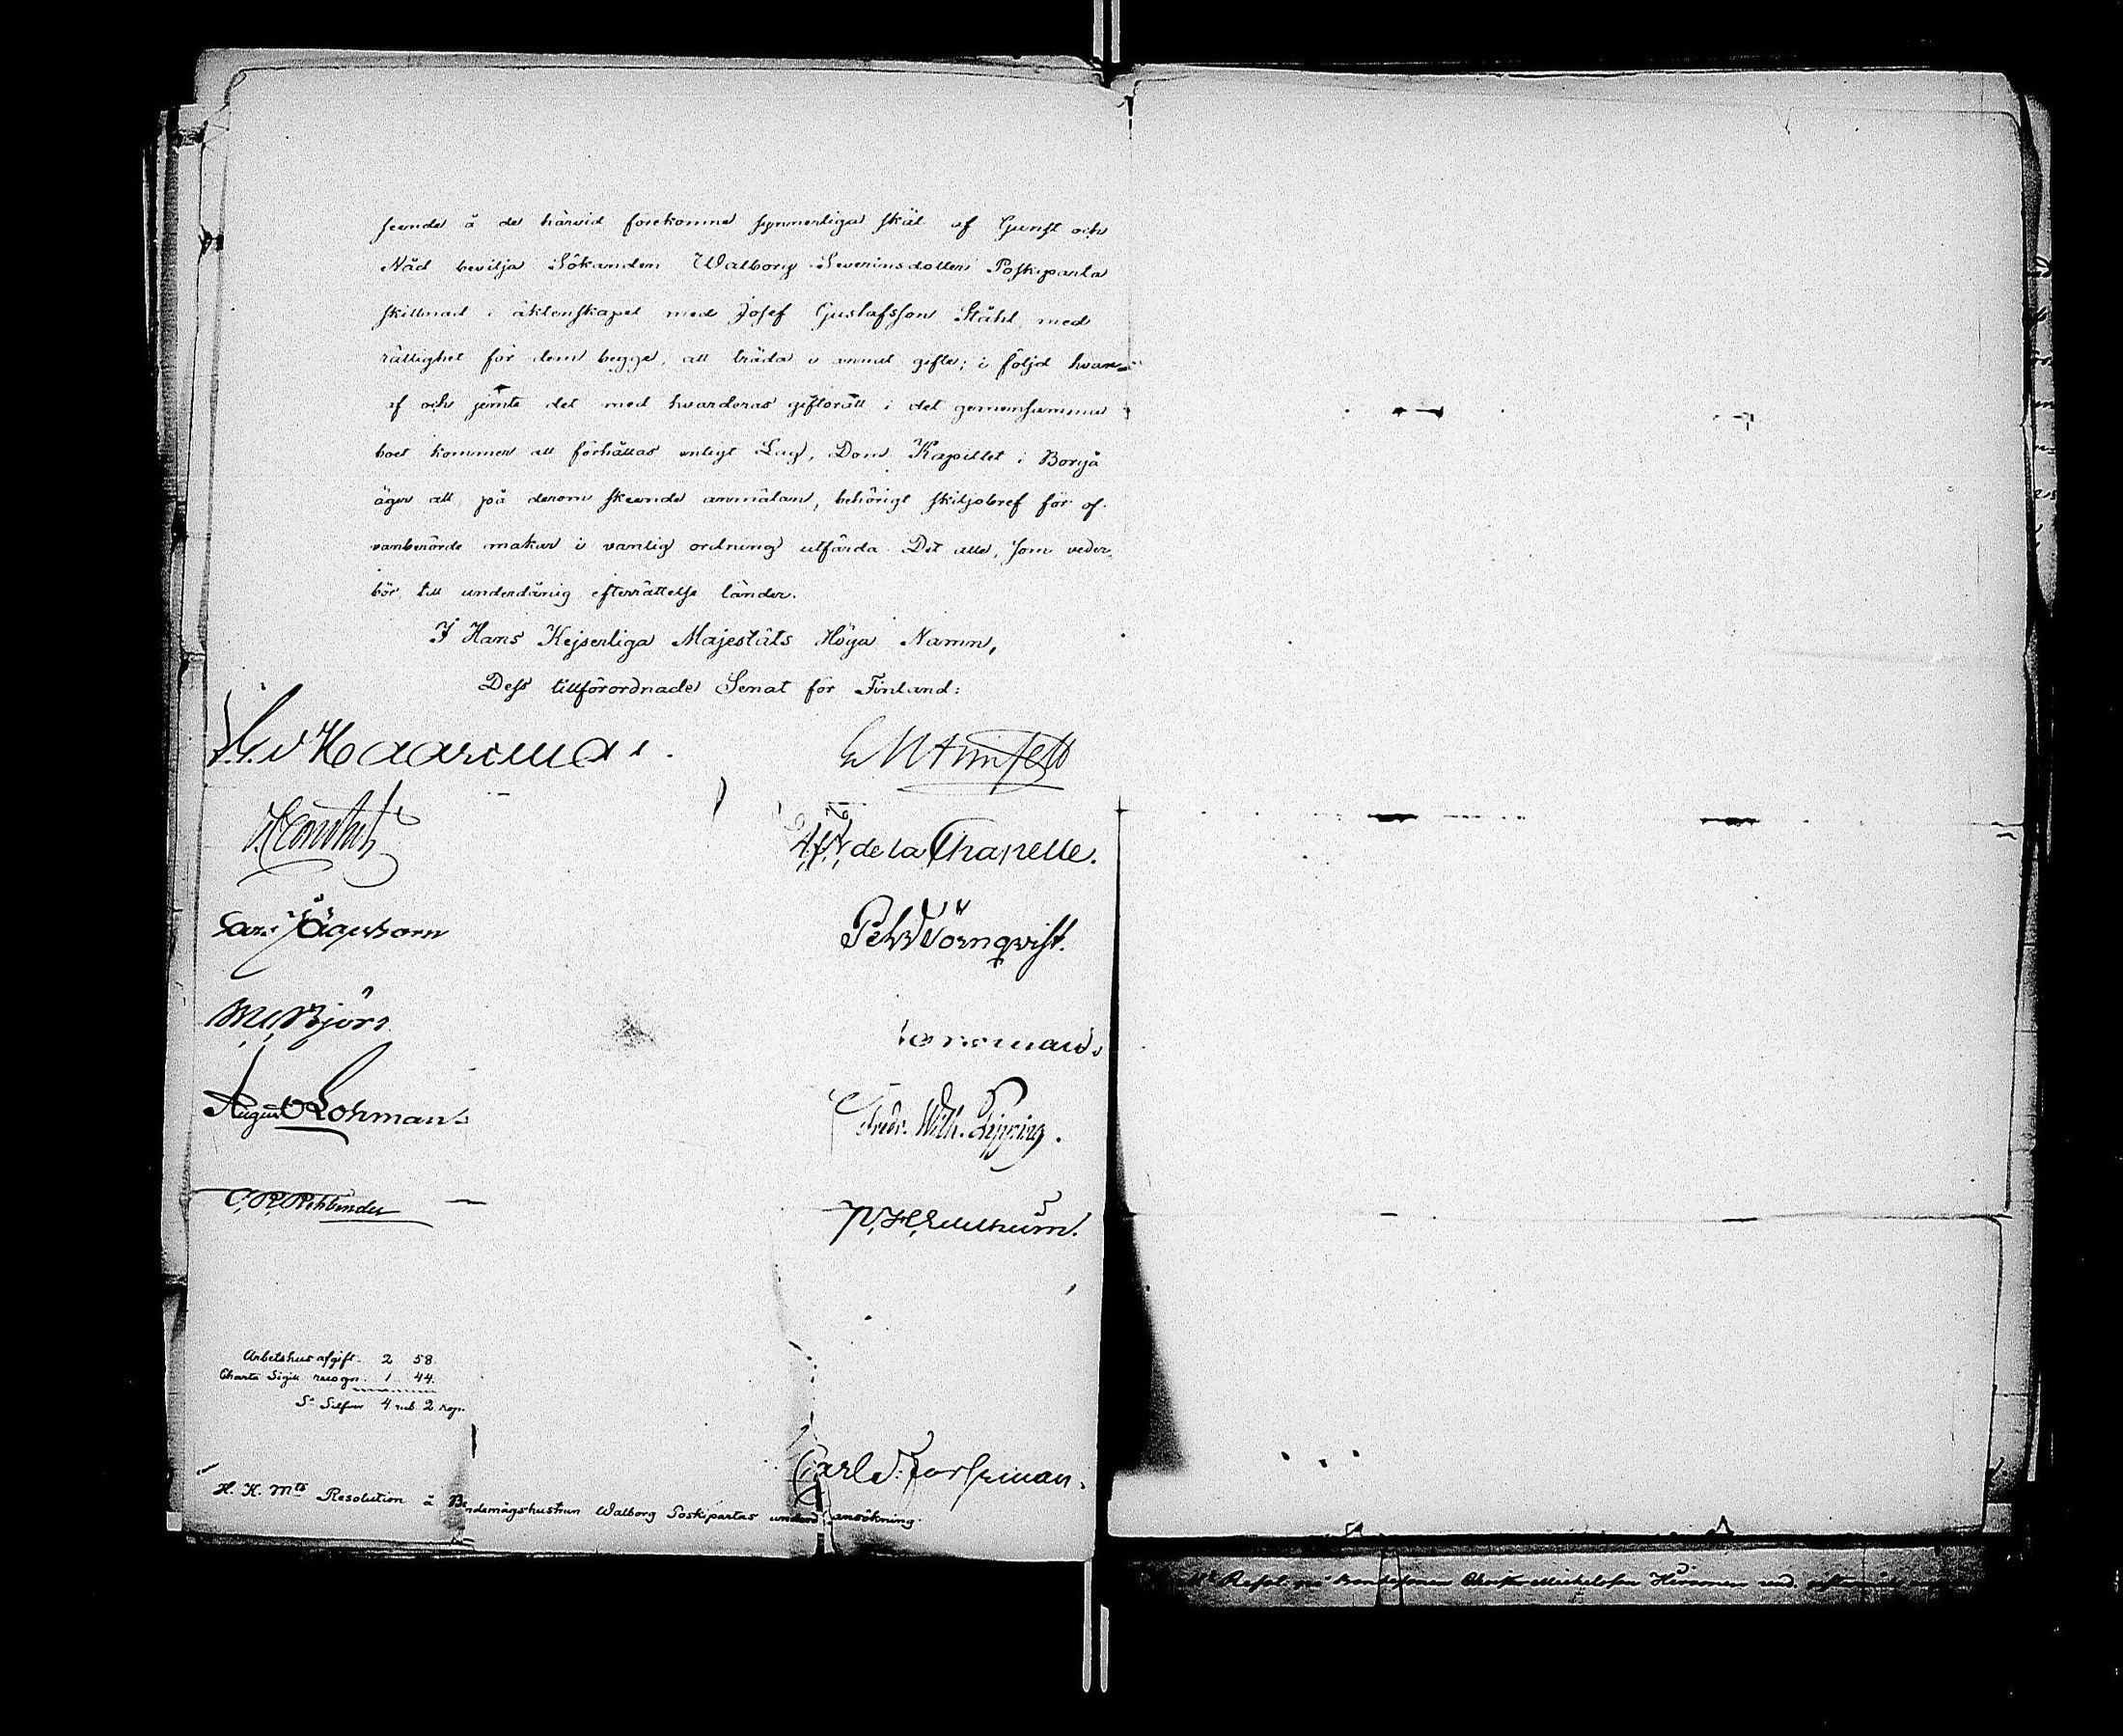 seende å de härvid förekomne synnerliga skäl af Gunst och
Nåd bevilja Sökanden Walborg Severinsdotter Poskiparta
skillnad i äktenskapet med Josef Gustafsson Ståhl, med
rättighet för dem begge, att träda i annat gifte; i följd hvar-
af och jemte det med hvarderas giftorätt i det gemensamma
boet kommer att förhållas enligt Lag, Dom Kapitlet i Borgå
äger att, på derom skeende anmälan, behörigt skiljobref för of-
vanberörde makar i vanlig ordning utfärda. Det alle, som veder-
bör till underdånig efterrättelse länder.
I Hans Kejserliga Majestäts Höga Namn,
Dess tillförordnade Senat för Finland:
de la Chapelle.
Carl Jägerhorn
Petr Törnqvist.
August Lohman.
Fredr. Wilh. Pipping.
C. R. Rehbinder
Arbetshus afgift. 2 58.
Charta Sigill recogn. 1 44.
Sa Silfver 4 rub. 2 kop.
Carl Forssman.
H. K. Mts Resolution å Bondemågshustrun Walborg Poskipartas underd. ansökning.